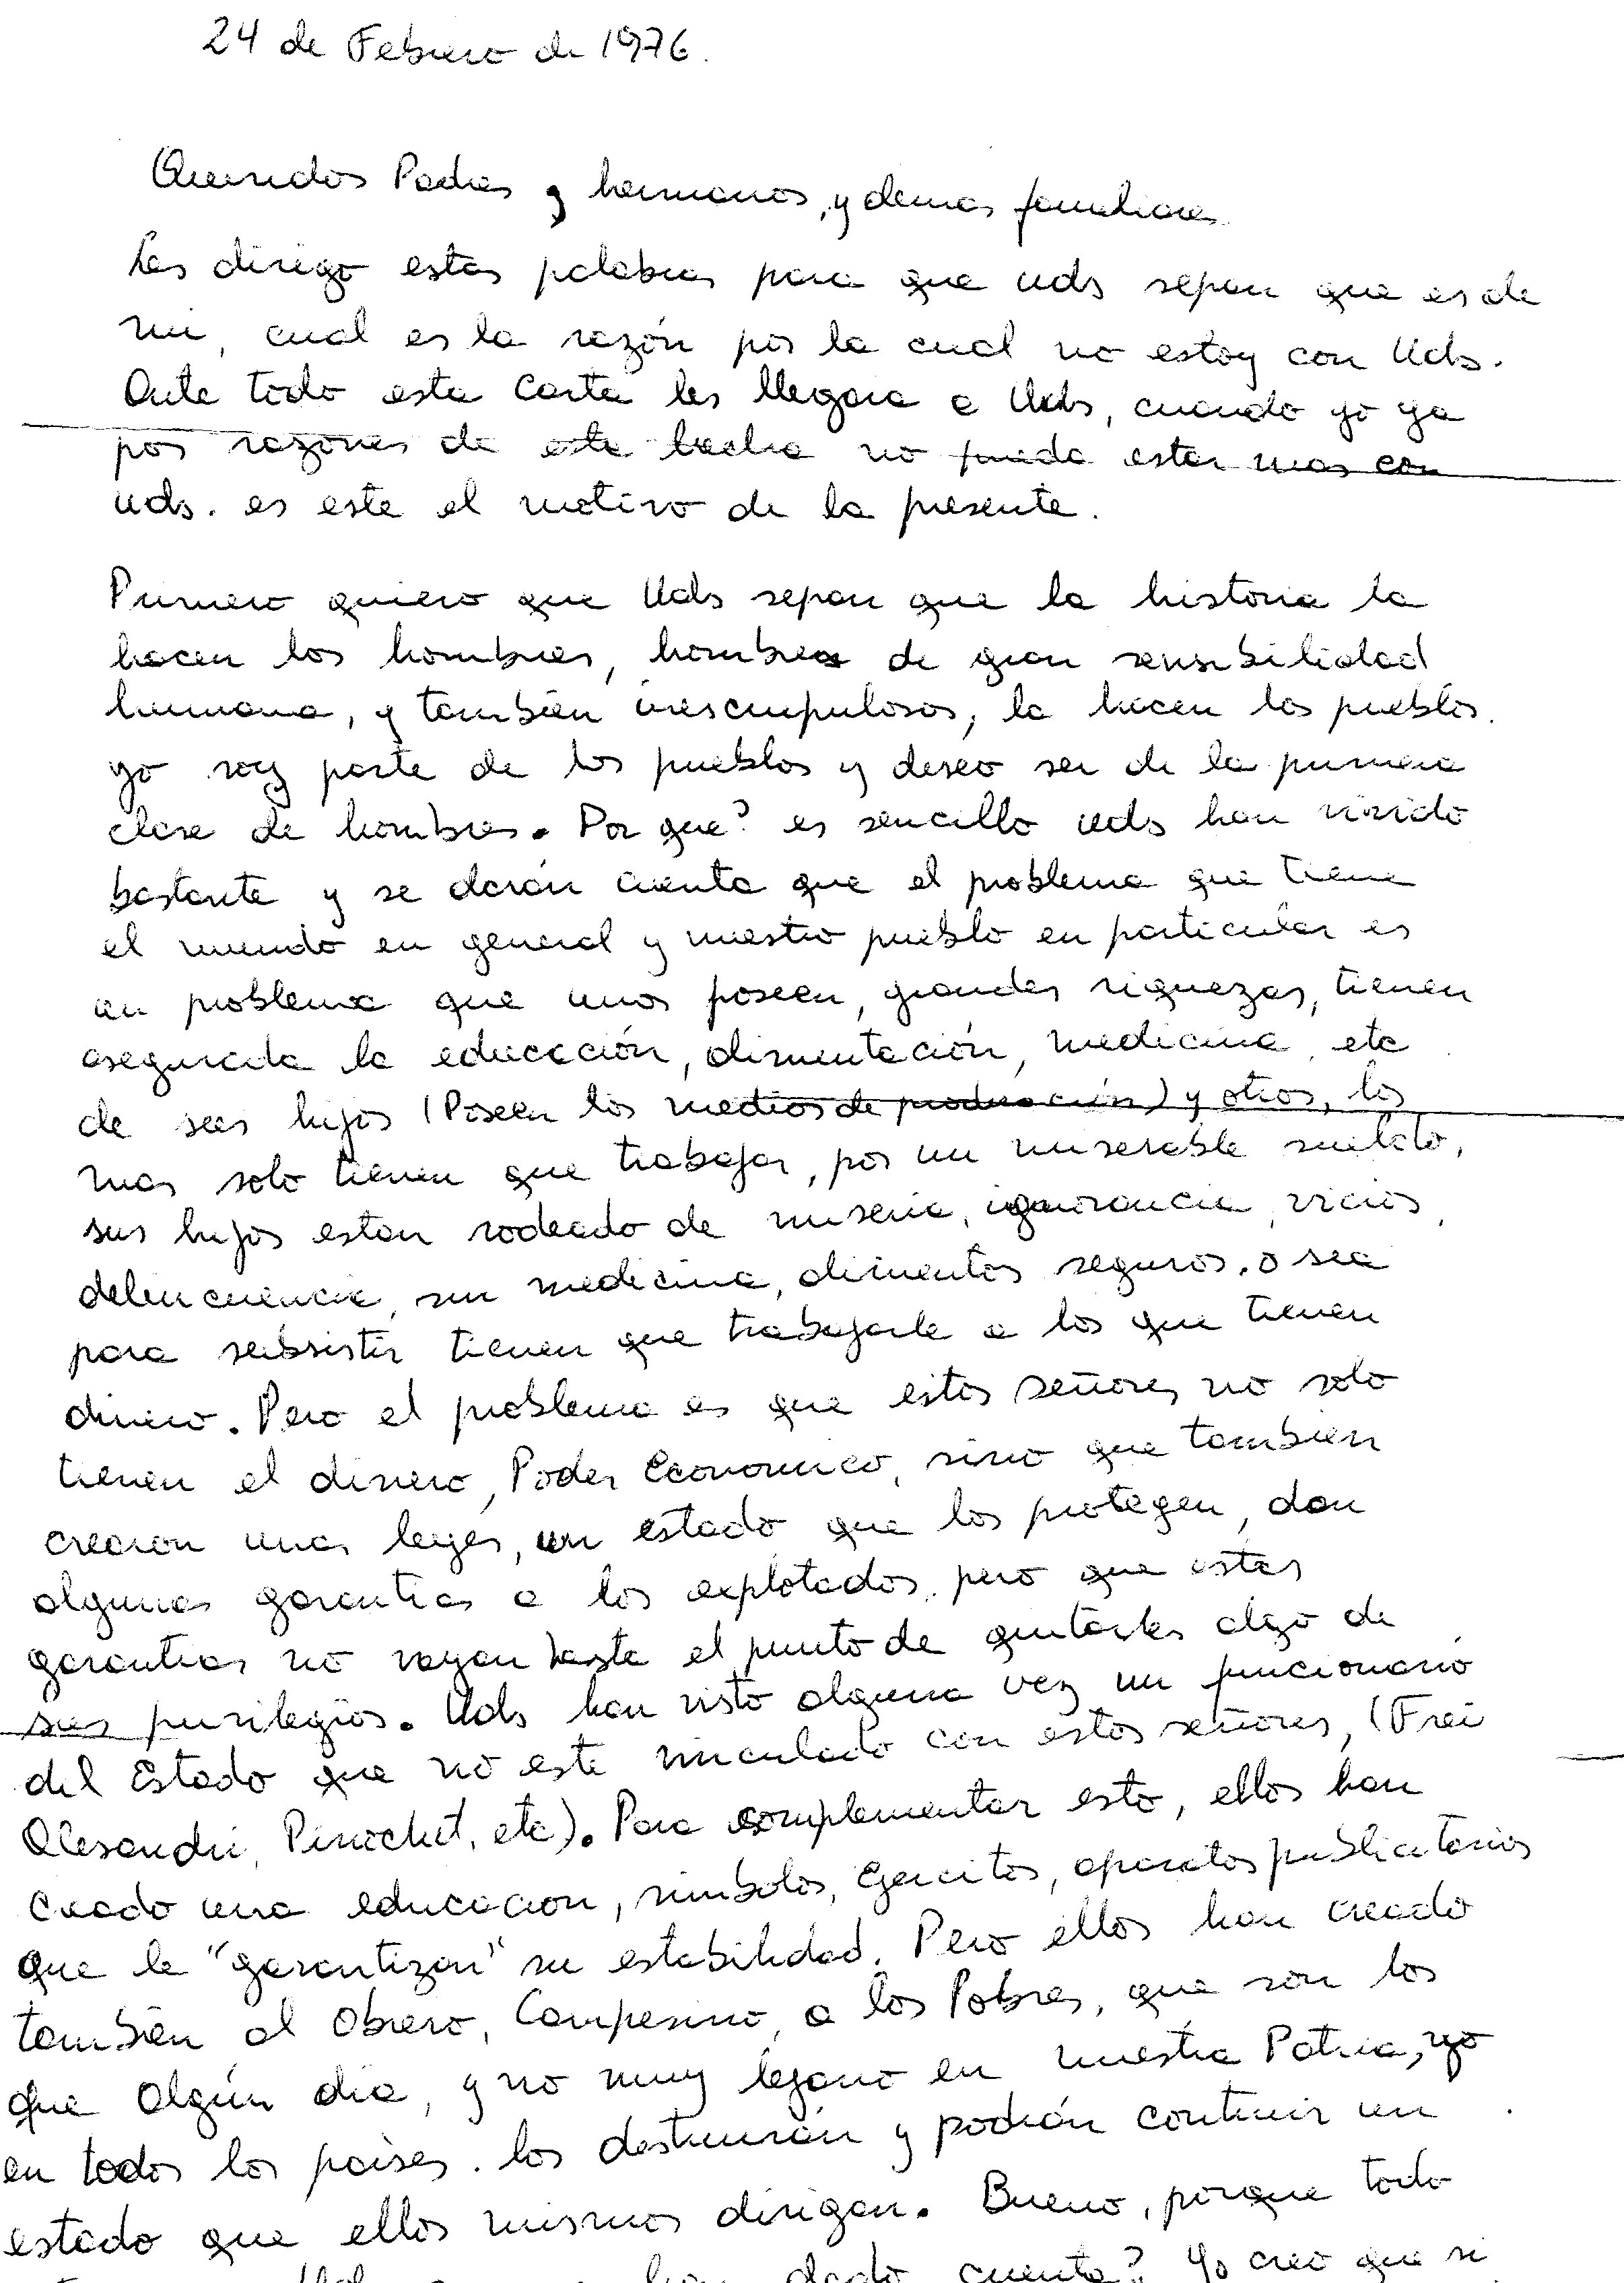 24 de Febrero de 1976.
Queridos Padres y hermanos, y demas familiares.
Les dirigo estas palabras para que uds sepan que es de
mi, cual es la razón por la cual no estoy con Uds.
Ante todo esta carta les llegara a Uds, cuando yo ya
por razones de esta lucha no pueda estar mas con
uds. es este el motivo de la presente.
Primero quiero que Uds sepan que la historia la
hacen los hombres, hombres de gran sensibilidad
humana, y también inescrupulosos, la hacen los pueblos.
yo soy parte de los pueblos y deseo ser de la primera
clase de hombres. Por que? es sencillo uds han vivido
bastante y se darán cuenta que el problema que tiene
el mundo en general y nuestro pueblo en particular es
un problema que unos poseen, grandes riquezas, tienen
asegurada la educación, alimentación, medicina, etc
de sus hijos (Poseen los medios de producción) y otros, los
mas solo tienen que trabajar, por un miserable sueldo,
sus hijos estan rodeado de miseria, ignorancia, vicios,
delincuencia, sin medicina, alimentos seguros. o sea
para subsistir tienen que trabajarle a los que tienen
dinero. Pero el problema es que estos señores no solo
tienen el dinero, Poder Economico, sino que tambien
crearon unas leyes, un estado que los protegen, dan
algunas garantias a los explotados, pero que estas
garantias no vayan hasta el punto de quitarles algo de
sus privilegios. Uds han visto alguna vez un funcionario
del Estado que no este vinculado con estos señores, (Frei
Alesandri, Pinochet, etc). Para complementar esto, ellos han
creado una educacion, simbolos, Ejercitos, aparatos publicitarios
que le "garantizan" su estabilidad. Pero ellos han creado
también al Obrero, Campesino, a los Pobres, que son los
que Algún dia, y no muy lejano en nuestra Patria, yo
en todos los paises. los destruirán y podrán contruir un
estado que ellos mismos dirigan. Bueno, porque todo
han dado cuenta? Yo creo que si